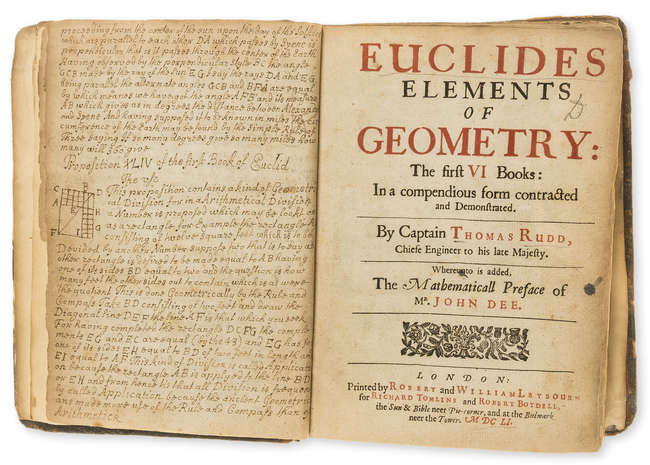 proceeding from the center of the sun upon the day of the
which are parallel to each other DA which passes by Syene is
perpendicular that is it passes through the center of the Earth
Having observed by the perpendicular style SC the angle
GCB made by the ray of the sun EG I say the rays DA and EG
being parallel the alternate angles GCB and BFA are equal
by which means we have got the angle AFB and its measure
AB which gives us in degrees the distance between
and Syene And having supposed it to be known in miles the Cir
cumference of the Earth may be found by the Simple Rule of
Three saying if so many degrees give so many miles how
many will 360 give
Proposition XLIV of the first Book of Euclid
The use
This proposition contains a kind of Geometri
cal Division for in Arithmetical Division
a Number is proposed which may be lookt on
as a rectangle for Example the rectangle AB
consisting of twelve square feet which is to be
Devided by another Number suppose two that is to say an
other rectangle is desired to be made equal to AB having
one of its sides BD equal to two and the question is how
many feet the other sides out to contain which is as were
the quotient This is done Geometrically by the Rule and
Compass Take BD consisting of two feet and draw the
Diagonal line DEF the line AF is that which you seek
For having completed the rectangle DCFG the comple
ments EG and EC are equal (by the 43) and EG has for
one of its sides EH equal to BD of two feet in length and
EI equal to AF This kind of Division is called Applicati
on because the rectangle AB is applied to the line BD
or EH and from hence its that all Division is frequen
ly called Application because the ancient Geometri
ans made more use of the Rule and Compass than of
Arithmetick
C
A
F
D
B
H
G
EUCLIDES
ELEMENTS
OF
GEOMETRY:
The first VI Books:
In a compendious form contracted
and Demonstrated.
By Captain THOMAS RUDD,
Chiefe Engineer to his late Majesty.
Whereunto is added.
The Mathematicall Preface of
Mr. JOHN DEE.
LONDON:
Printed by ROBERT and WILLIAM LEYBOURN
for RICHARD TOMLINS and ROBERT BOYDELL,
the Sun & Bible neer Pie-corner, and at the Bulwark
neer the Tower. M DC LI.